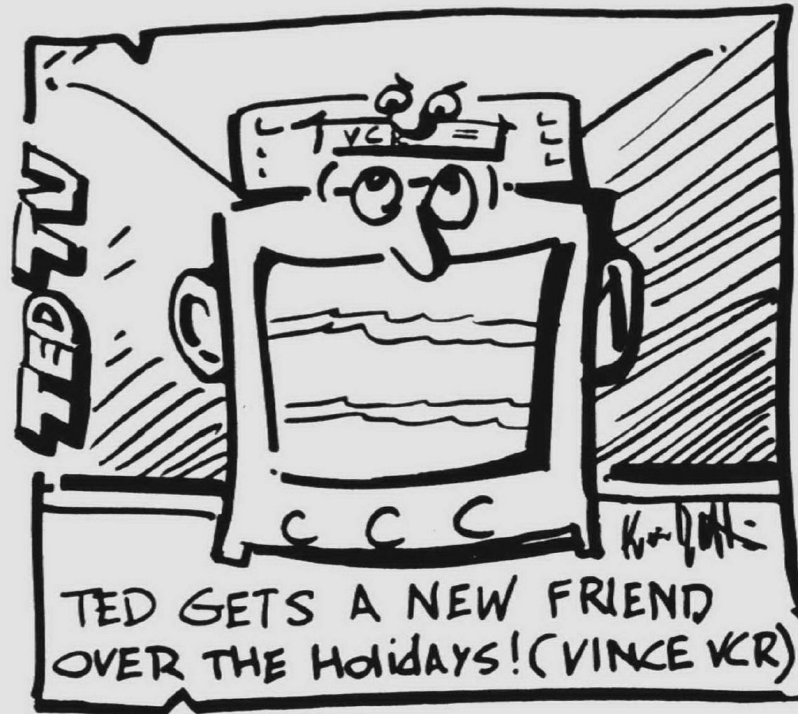 TED TV
VCR
TED GETS A NEW FRIEND
OVER THE HOLidAYS! (VINCE VCR)